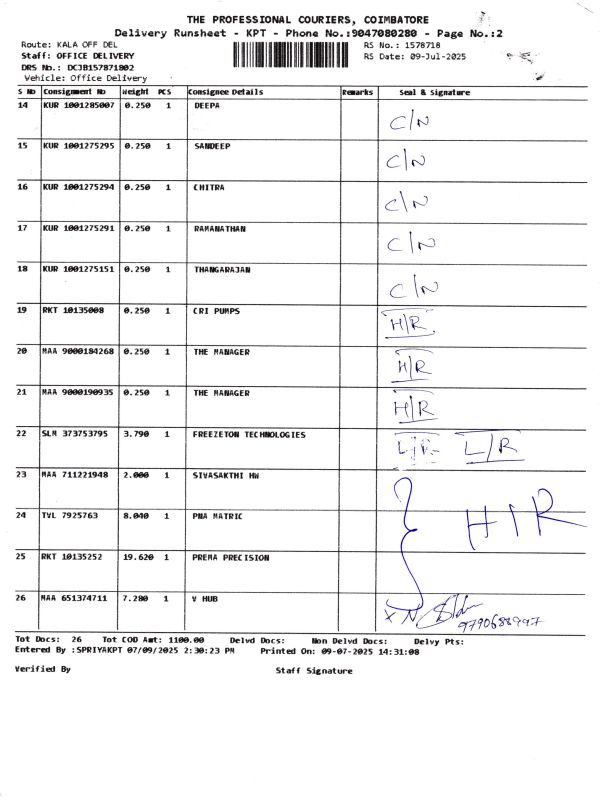 THE PROFESSIONAL COURIERS, COIMBATORE
Delivery Runsheet - KPT - Phone No.:9047080280 - Page No.:2
Route: KALA OFF DEL RS No.: 1578718
Staff: OFFICE DELIVERY RS Date: 09-Jul-2025
DRS No.: DCJB157871802
Vehicle: Office Delivery
S No Consignment No Weight PCS Consignee Details Remarks Seal & Signature
14 KUR 1001285007 0.250 1 DEEPA C/N
15 KUR 1001275295 0.250 1 SANDEEP C/N
16 KUR 1001275294 0.250 1 CHITRA C/N
17 KUR 1001275291 0.250 1 RAMANATHAN C/N
18 KUR 1001275151 0.250 1 THANGARAJAN C/N
19 RKT 10135008 0.250 1 CRI PUMPS H/R
20 MAA 9000184268 0.250 1 THE MANAGER H/R
21 MAA 9000190935 0.250 1 THE MANAGER H/R
22 SLM 373753795 3.790 1 FREEZETON TECHNOLOGIES L/R
23 MAA 711221948 2.000 1 SIVASAKTHI HW
24 TVL 7925763 8.040 1 PNA MATRIC H/R
25 RKT 10135252 19.620 1 PREMA PRECISION
26 MAA 651374711 7.280 1 V HUB
9790688997
Tot Docs: 26 Tot COD Amt: 1100.00 Delvd Docs: Non Delvd Docs: Delvy Pts:
Entered By :SPRIYAKPT 07/09/2025 2:30:23 PM Printed On: 09-07-2025 14:31:08
Verified By Staff Signature